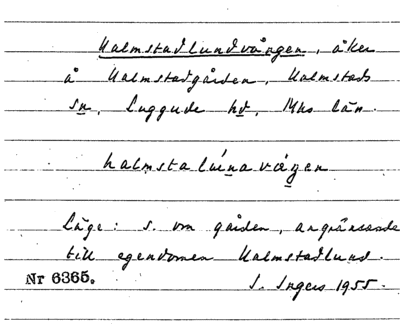 Halmstadlundvången, åker
å Halmstadgården, Halmstads
sn, Luggude hd, Mhs län.
halmstalúnavæ̀gen
Läge: s. om gården, angränsande
till egendomen Halmstadlund.
Nr 6365. I. Ingers 1955.